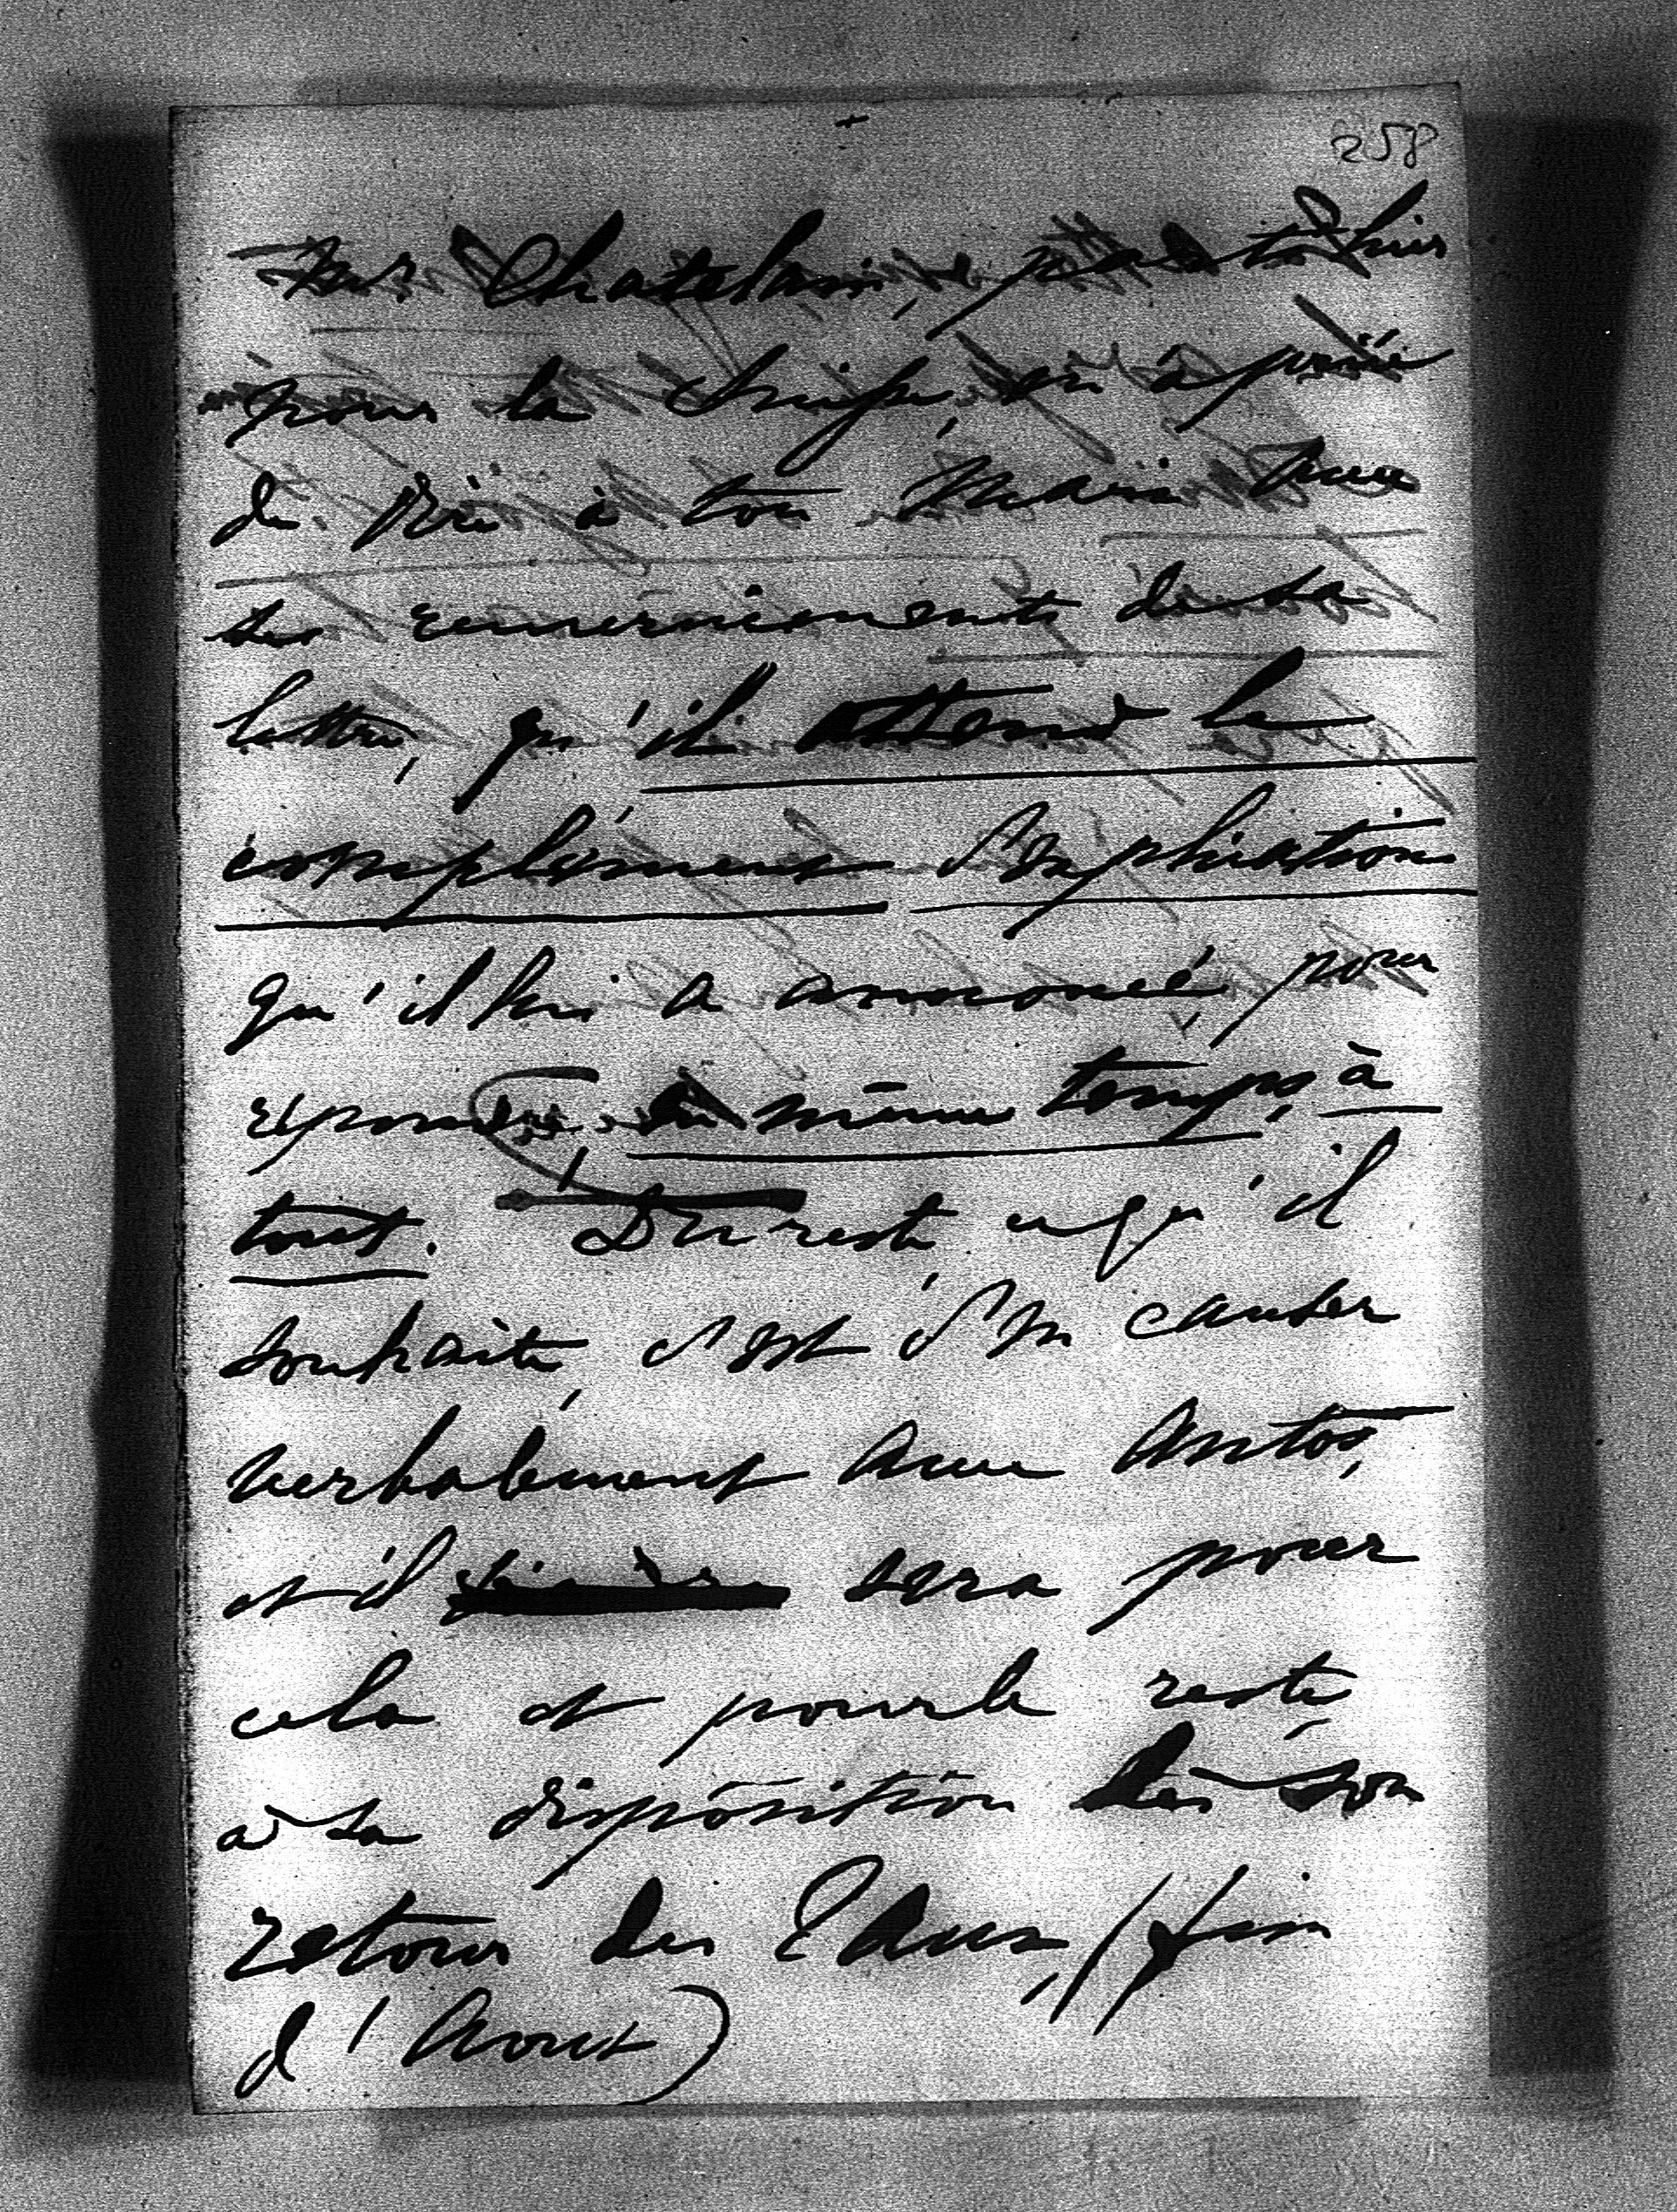 258
Mr Chatelain, parti hier
pour la Suisse, m'a prié
de dire à ton Mari avec
ses remerciements de sa
lettre, qu'il attend le
complément d'explications
qu'il lui a annoncé, pour
répondre en même temps à
tout. Du reste ce qu'il
souhaite, c'est d'en causer
verbalement avec Anto,
et il sera pour
cela et pour le reste
à sa disposition dès son
retour des Eaux, (fin
d'Aout)